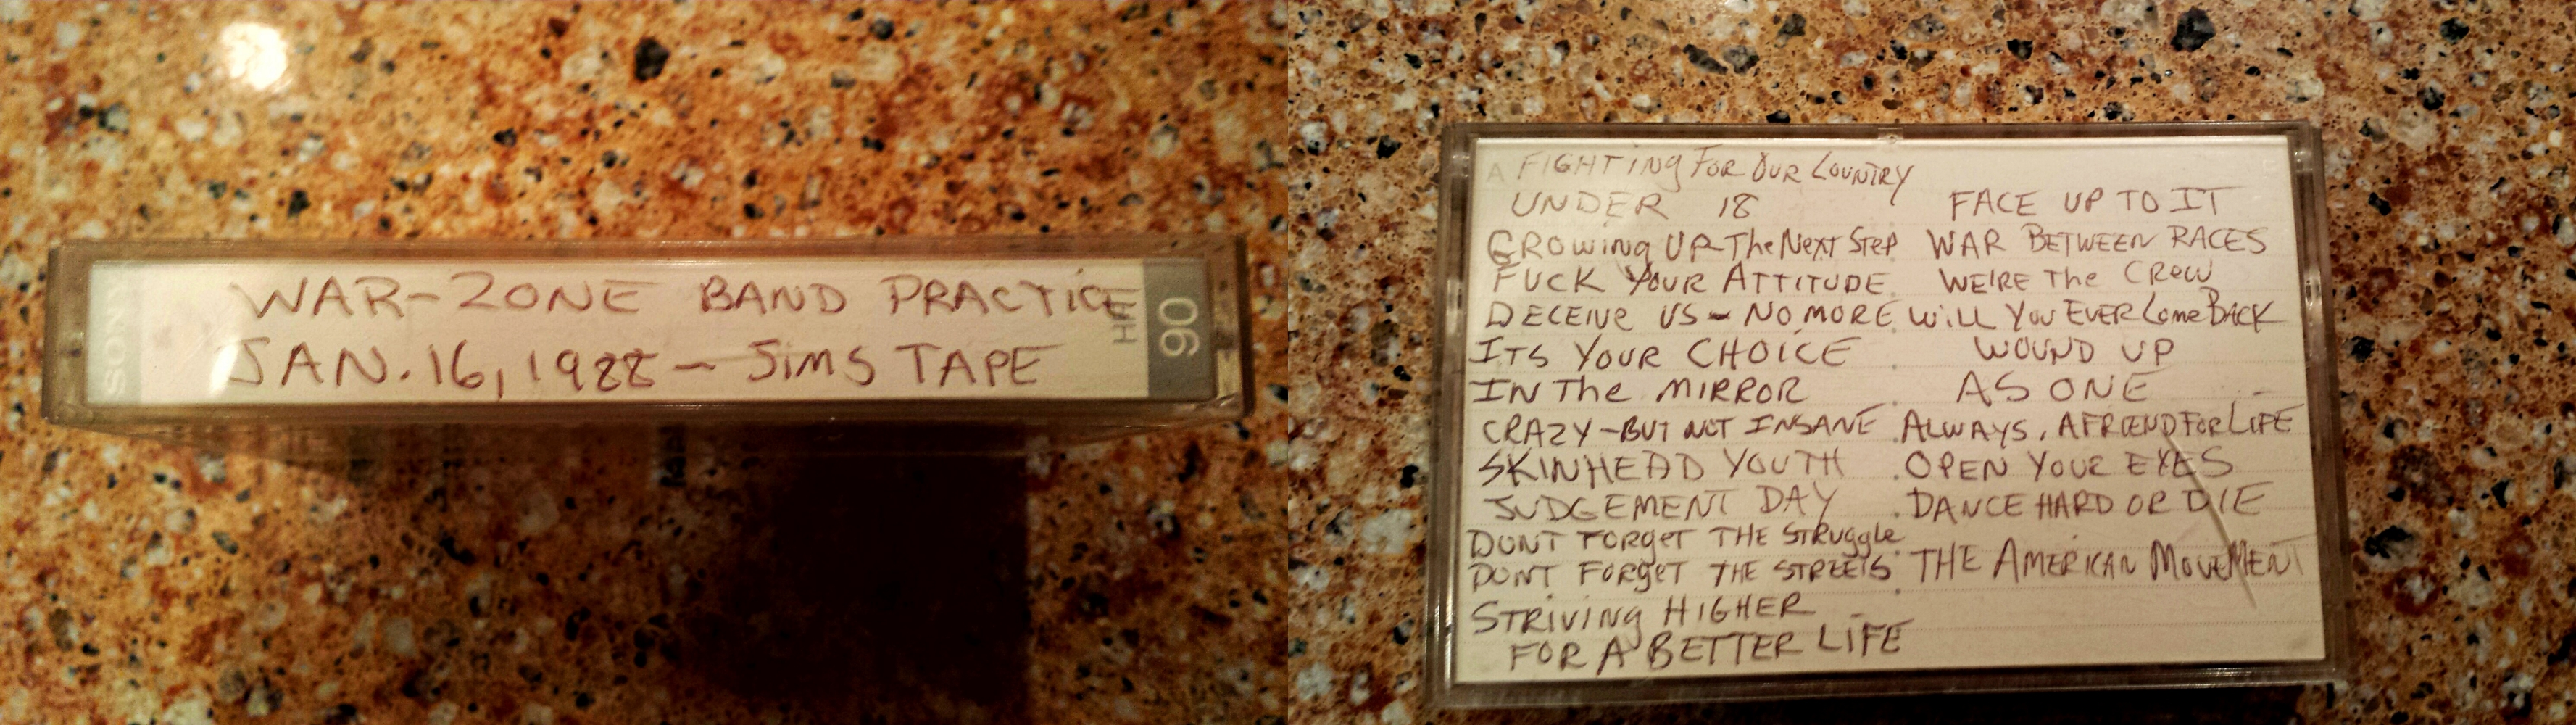 WAR-ZONE BAND PRACTICE
JAN. 16, 1988 - JIMS TAPE
SONY
HF
90
A FIGHTING FOR OUR COUNTRY
UNDER 18
GROWING UP-THE NEXT STEP
FUCK YOUR ATTITUDE
DECEIVE US - NO MORE
ITS YOUR CHOICE
IN THE MIRROR
CRAZY-BUT NOT INSANE
SKINHEAD YOUTH
JUDGEMENT DAY
DONT FORGET THE STRUGGLE
DONT FORGET THE STREETS
STRIVING HIGHER
FOR A BETTER LIFE
FACE UP TO IT
WAR BETWEEN RACES
WE'RE THE CREW
WILL YOU EVER COME BACK
WOUND UP
AS ONE
ALWAYS, A FRIEND FOR LIFE
OPEN YOUR EYES
DANCE HARD OR DIE
THE AMERICAN MOVEMENT